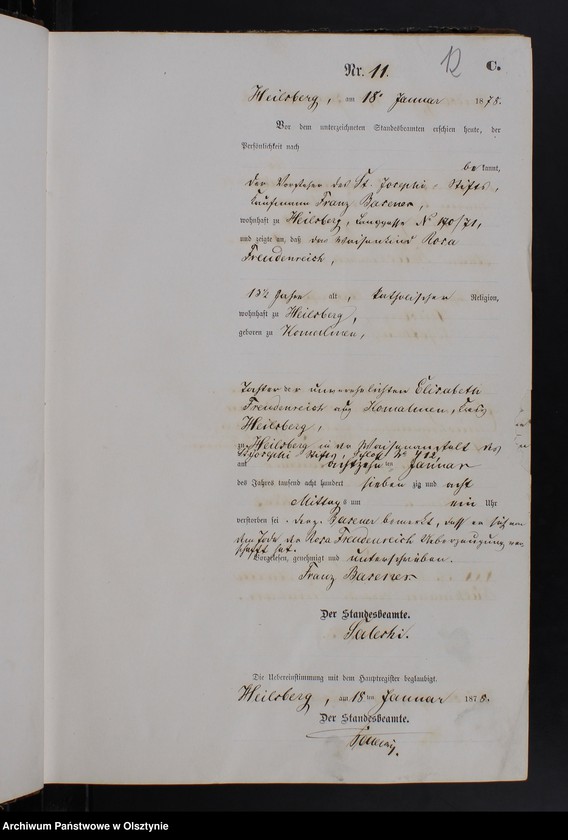 12
C.
Nr. 11.
Heilsberg, am 18. Januar 1878.
Vor dem unterzeichneten Standesbeamten erschien heute, der
Persönlichkeit nach
be kannt,
der Vorsteher des St. Josephi, Stifts,
Kaufmann Franz Basener,
wohnhaft zu Heilsberg, Langgasse No 170/71,
und zeigte an, daß das Waisenkind Rosa
Freudenreich,
13½ Jahre alt, katholischer Religion,
wohnhaft zu Heilsberg,
geboren zu Komalmen,
Tochter der unverehelichten Elisabeth
Freudenreich aus Komalmen, Kreis
Heilsberg,
zu Heilsberg in der Waisenanstalt des
St. Josephi Stifts, Schloß No 12,
am achtzehn ten Januar
des Jahres tausend acht hundert sieben zig und acht
Mittags um ein Uhr
verstorben sei. Der p. Basener bemerkt, daß er sich von
dem Tode der Rosa Freudenreich Ueberzeugung ver-
schafft hat.
Vorgelesen, genehmigt und unterschrieben.
Franz Basener
Der Standesbeamte.
Die Uebereinstimmung mit dem Hauptregister beglaubigt.
Heilsberg, am 18 ten Januar 1878.
Der Standesbeamte.
Archiwum Państwowe w Olsztynie